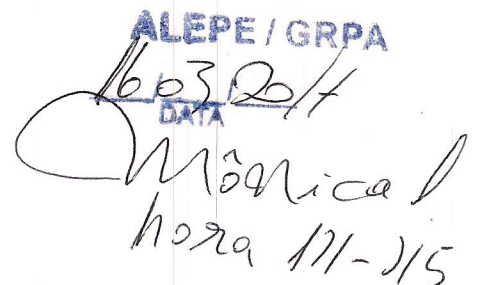 ALEPE / GRPA
16/03/2017
DATA
Mônica
hora